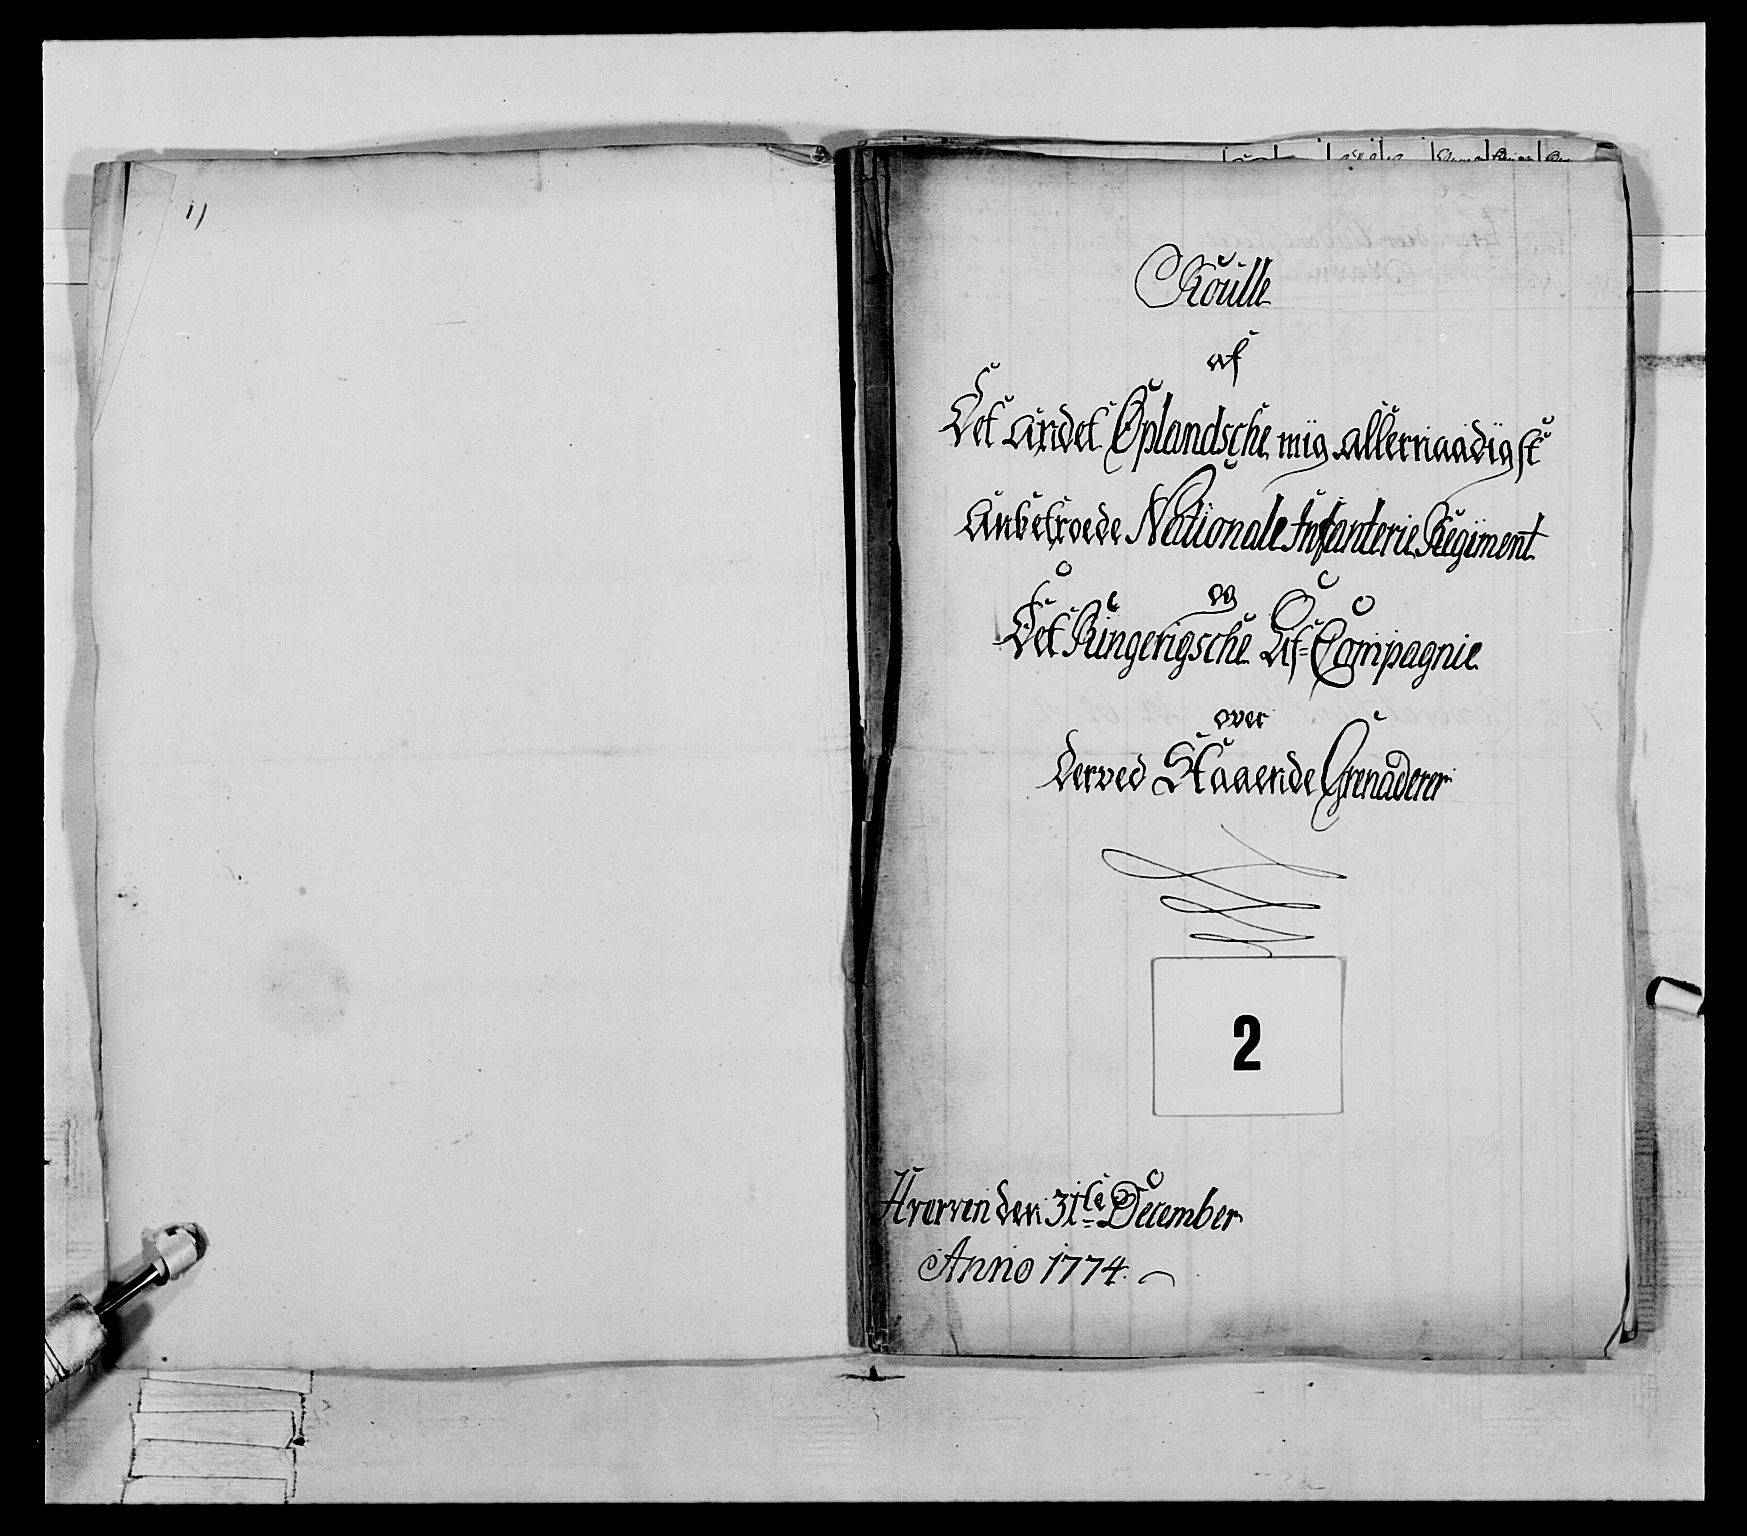 1)
Roulle
af
Det andet Oplandsche mig allernaadigst
anbetroede Nationale Infanterie Regiment
og
Det Ringerigsche Compagnie
over
derved Staaende Grenaderer
2
Hverven den 31te December
Anno 1774.